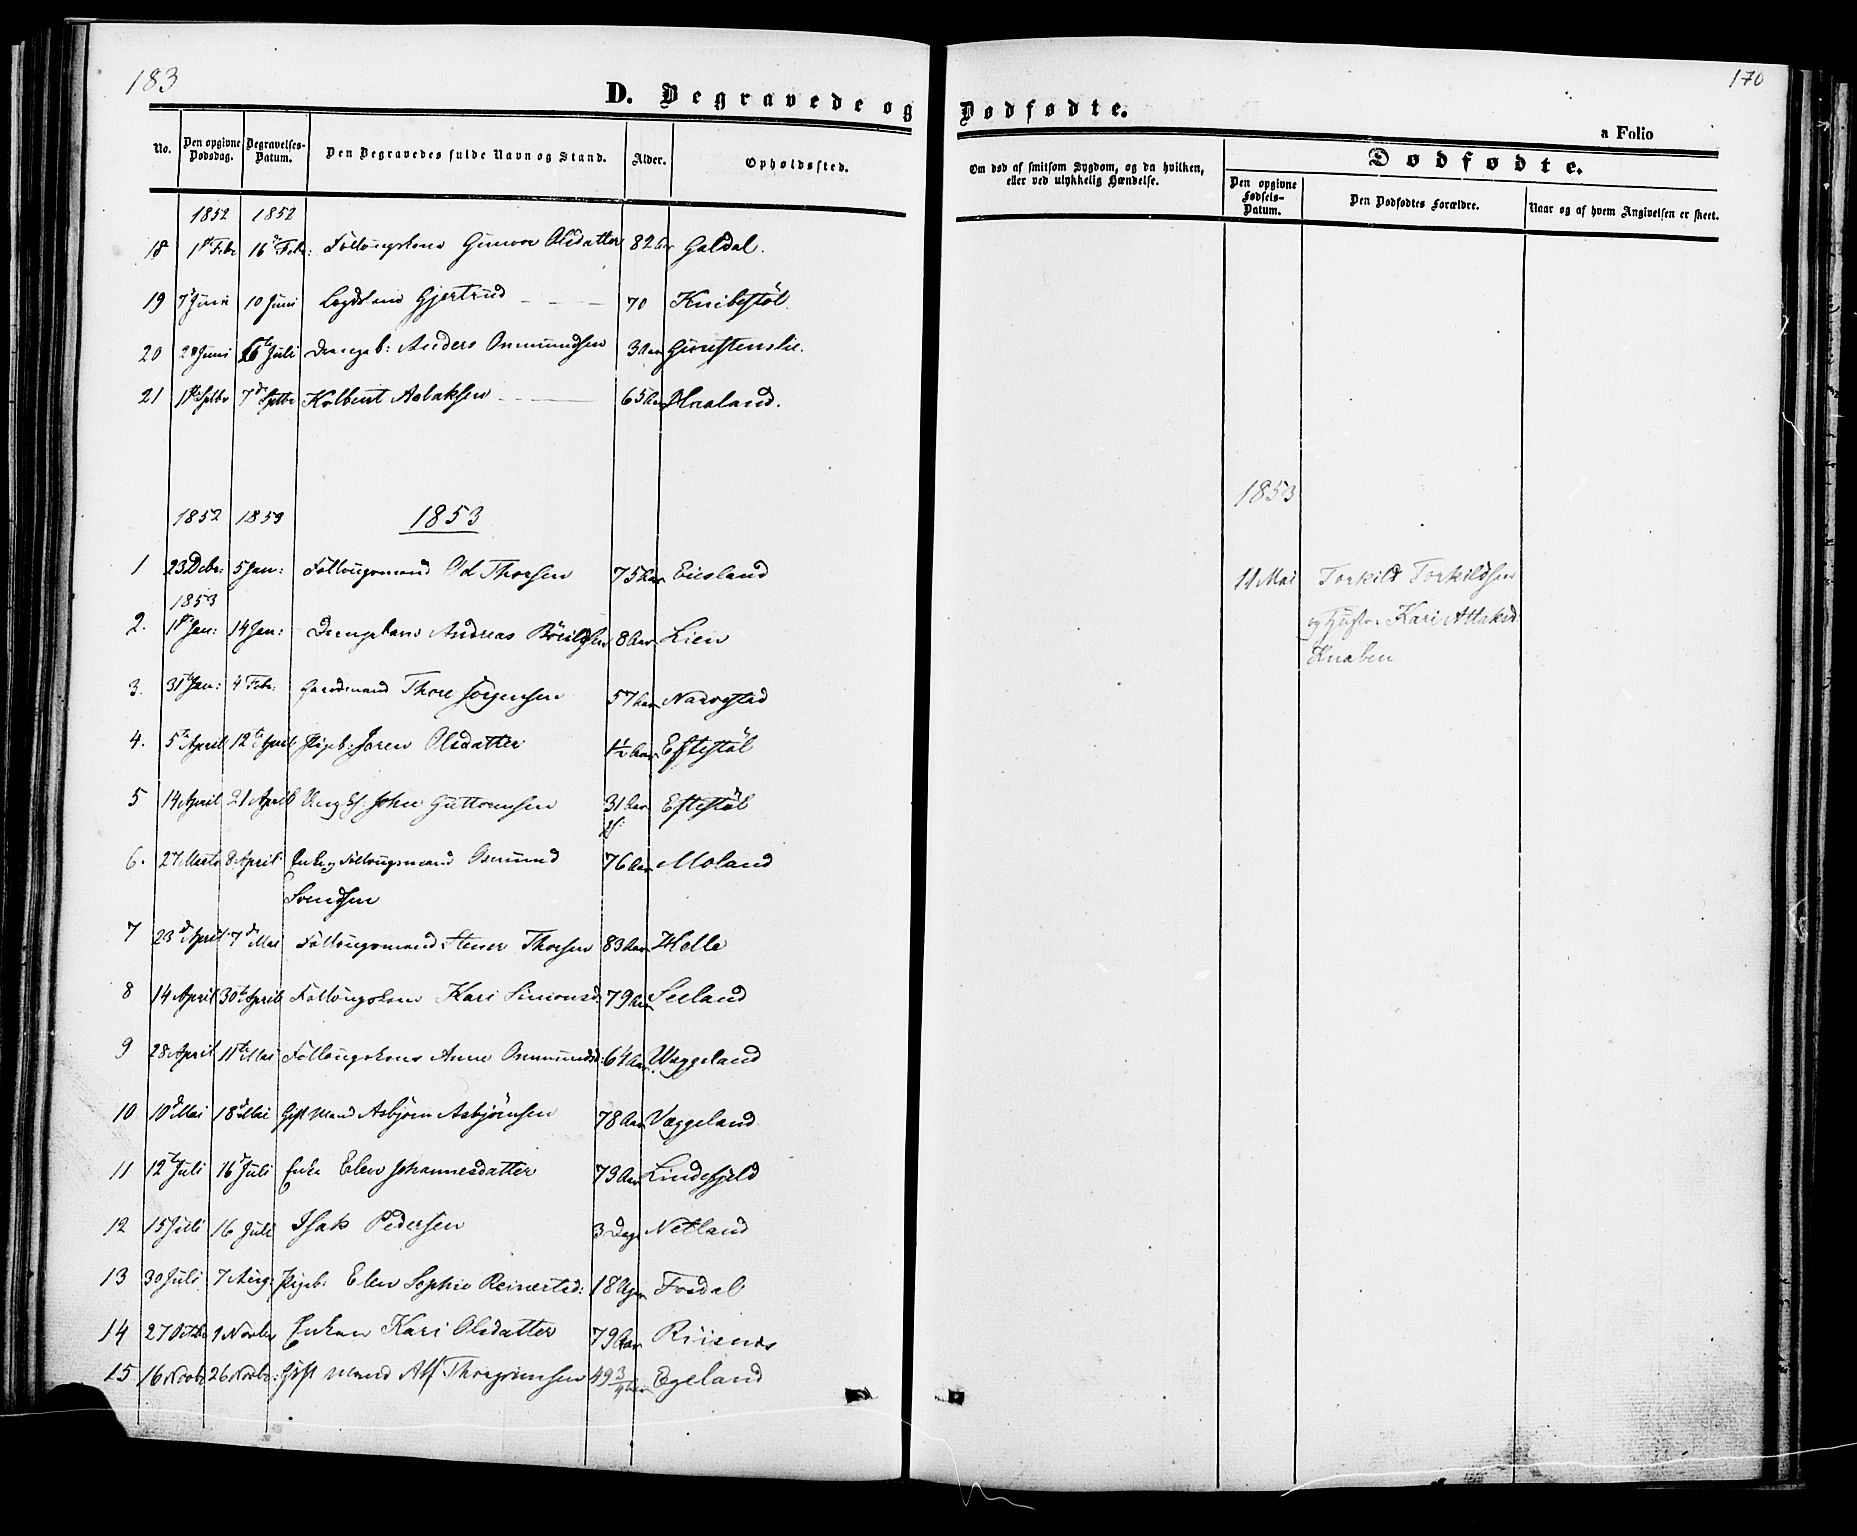 183
D. Begravede og
No. Den opgivne Dødsdag. Begravelses-Datum. Den Begravedes fulde Navn og Stand. Alder. Opholdssted.
1852 1852
18 1ste Febr 16de Febr: Føllougskone Gunvor Olsdatter 82 Aar Galdal.
19 7de Juni 10 Juni Gjertrud 70 Knibestöl.
20 29 Juni Juli Drengeb: Anders Osmundsen
21 1ste Septbr 7de Septbr Kolbent Aslaksen 65 Aar Haaland.
1852 1853 1853
1 23 Debr: 5 Jan: Føllougsmand Od Thorsen 75 Aar Eiesland
1853
2. 1ste Jan: 14 Jan: Drengebarn Andreas 8 Aar Lien
3. 31te Jan: 4 Febr: Gaardmand Thore Jørgensen 57 Aar Narvestad
4. 5te April 12te April Pigeb: Joren Olsdatter 1½ Aar Eftestöl
5 14 April 21 April Ung K: John Guttormsen 31 Aar Eftestöl
6. 27 Marts 8 April Enke og Føllougsmand Osmund 76 Aar Moland
Svendsen
7 23de April 7de Mai Føllougsmand Stener Thorsen 83 Aar Helle
8 14 April 30te April Føllougskone Kari Simonsd: 79 Aar Seeland
9 28 April 11te Mai Føllougskone Anne Osmundsd: 64 Aar. Væggeland
10 10de Mai 18de Mai Gift Mand Asbjørn Asbjørnsen 78 Aar Væggeland
11 12te Juli 16de Juli Enke Elen Johannesdatter 79 Aar Lindefjeld
12 15 Juli 16 Juli Isak Pedersen 3 Dage Netland
13 30 Juli 7 Aug: Pigeb: Elen Sophie Reinertsd: 18 Uger Fosdal
14 27 Octbr 9 Novbr Enken Kari Olsdatter 79 Aar Risnes
15 16 Novbr 26 Novbr: Gift Mand Alf Thorgrimsen 49 3/4 Aar Egeland
170
Dødfødte.
a Folio
Om død af smitsom Sygdom, og da hvilken, eller ved ulykkelig Hændelse. Dødfødte.
Den opgivne Fødsels-Datum. Den Dødfødtes Forældre. Naar og af hvem Angivelsen er skeet.
1853
11 Mai Torkild Torkildsen
og Hustr. Kari Attaksd
Knaben